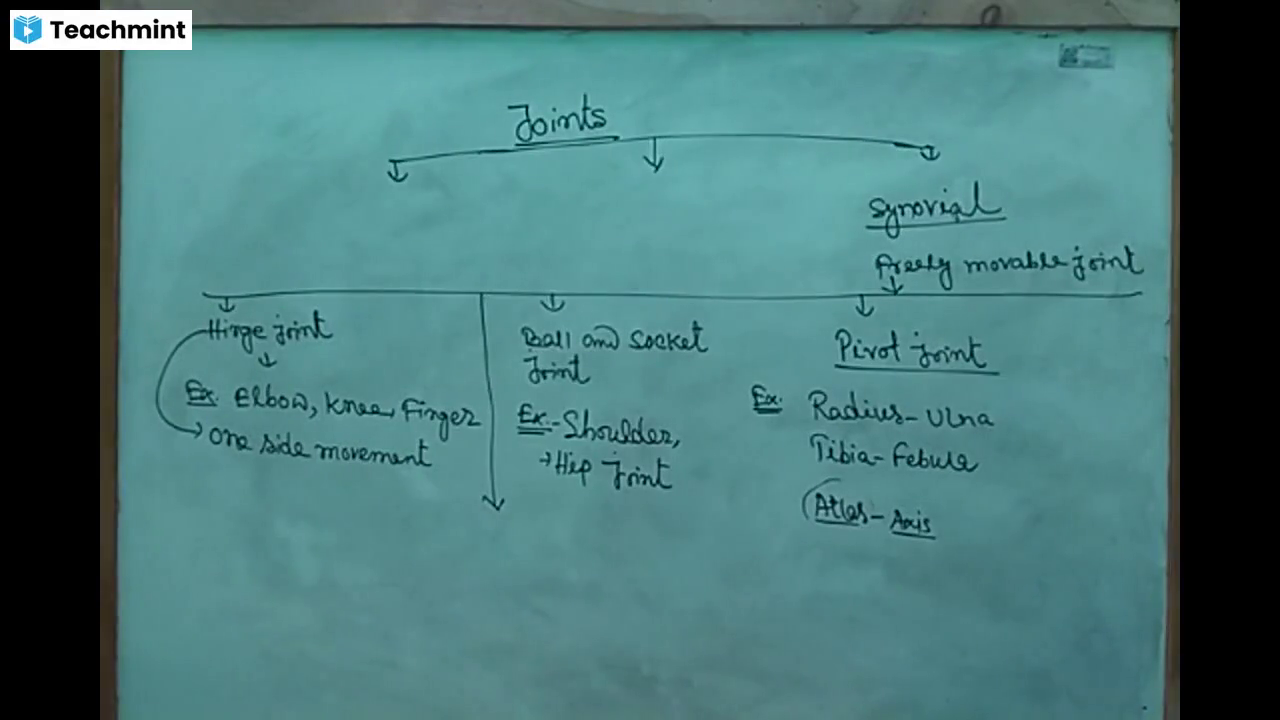 Teachmint
Joints
Synovial
freely movable joint
Hinge joint
Ex. Elbow, Knee, Finger
one side movement
Ball and Socket
Joint
Ex.- Shoulder,
Hip Joint
Pivot joint
Ex. Radius - Ulna
Tibia - Febule
Atlas - Axis